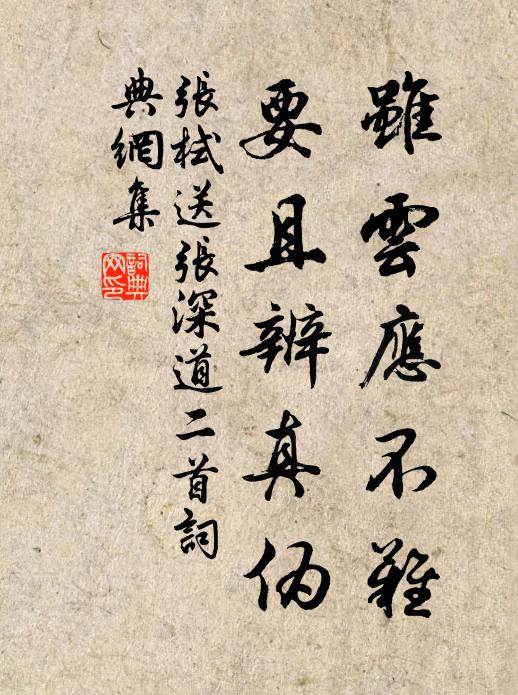 雖雲應不難
要且辨真偽
張栻送張深道二首詞
典網集
詞典
网印